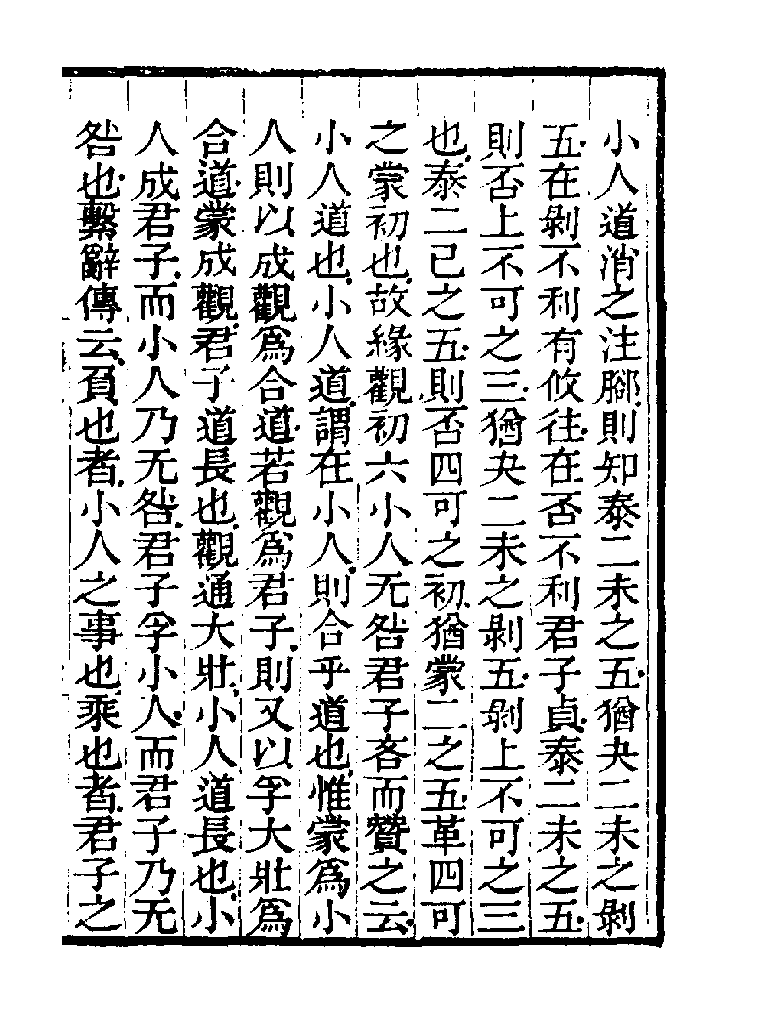 小人道消之注腳則知泰二未之五猶夬二未之剝
五在剝不利有攸往在否不利君子貞泰二未之五
則否上不可之三猶夬二未之剝五剝上不可之三
也泰二已之五則否四可之初猶蒙二之五革四可
之蒙初也故緣觀初六小人无咎君子吝而贊之云
小人道也小人道謂在小人則合乎道也惟蒙爲小
人則以成觀爲合道若觀爲君子則又以孚大壯爲
合道蒙成觀君子道長也觀通大壯小人道長也小
人成君子而小人乃无咎君子孚小人而君子乃无
咎也繫辭傳云負也者小人之事也乘也者君子之